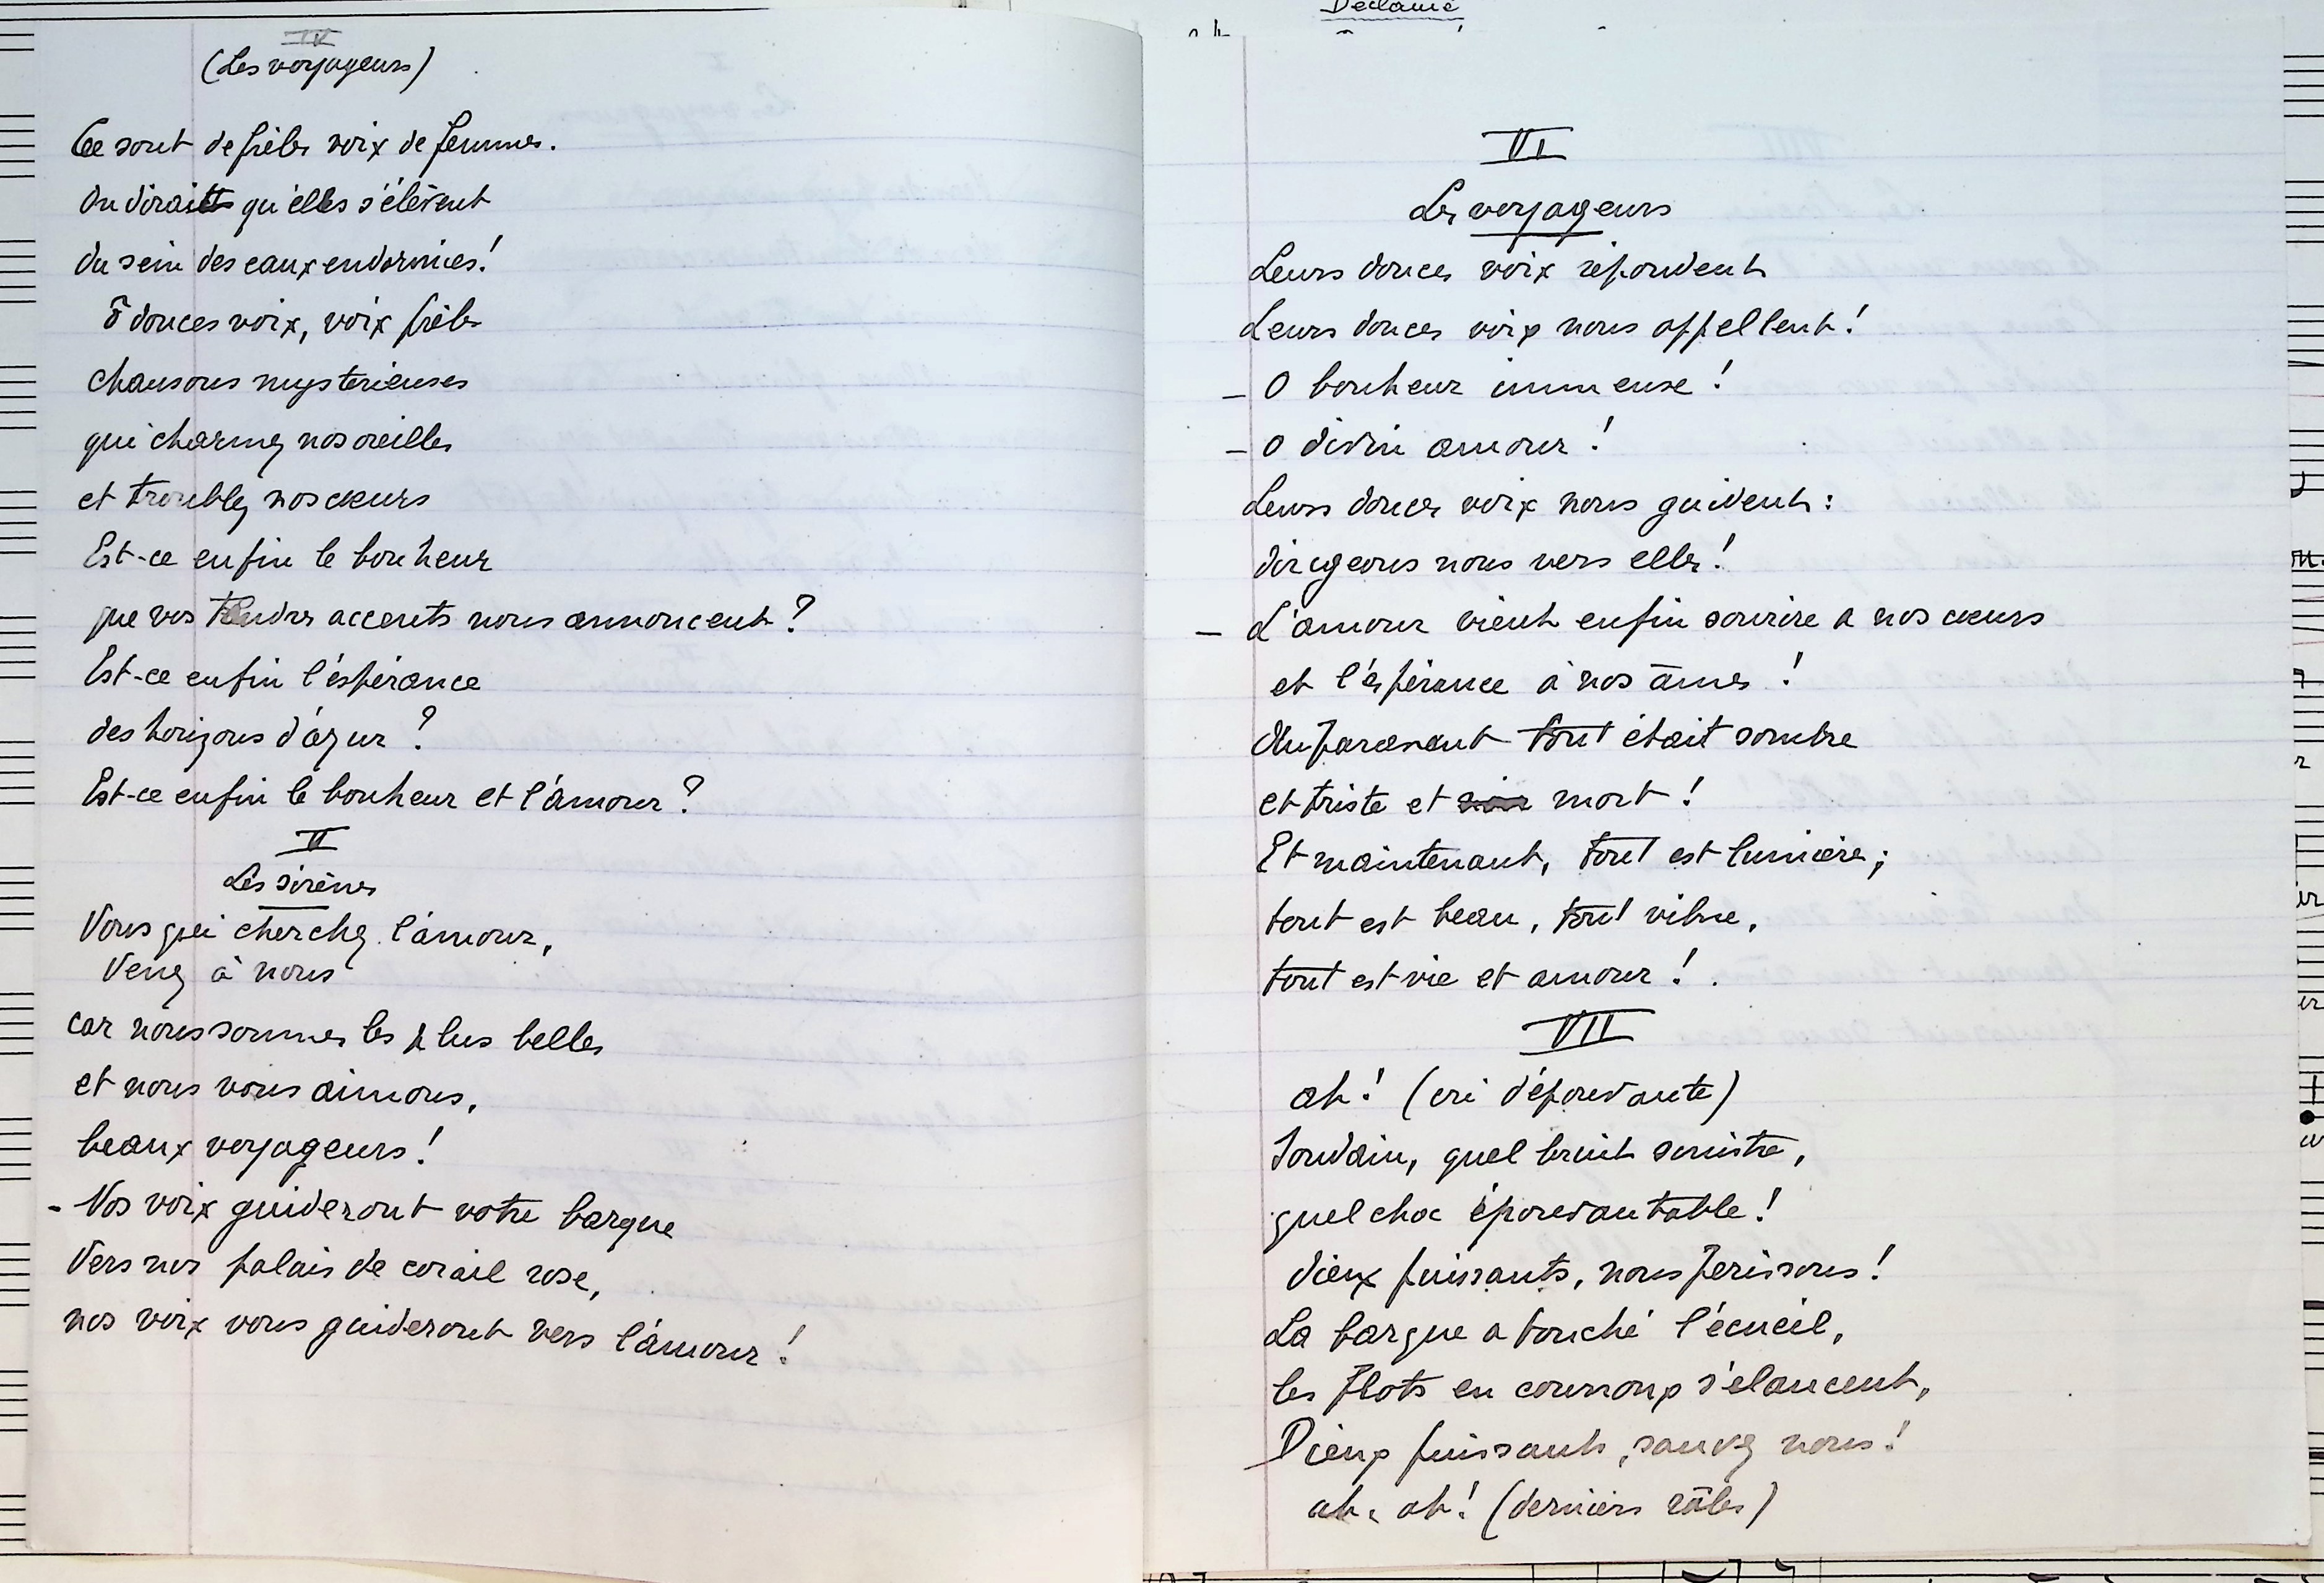 IV
(Les voyageurs)
Ce sont de frêles voix de femmes.
On dirait qu'elles s'élèvent
du sein des eaux endormies!
ô douces voix, voix frêles
chansons mysterieuses
qui charmez nos oreilles
et troublez nos cœurs
Est-ce enfin le bonheur
que vos tendres accents nous annoncent?
Est-ce enfin l'éspérance
des horizons d'azur?
Est-ce enfin le bonheur et l'amour?
V
Les sirènes
Vous qui cherchez l'amour,
Venez à nous
car nous sommes les plus belles
et nous vous aimons,
beaux voyageurs!
- Nos voix guideront votre barque
Vers nos palais de corail rose,
nos voix vous guideront vers l'amour!
Déclamé
VI
Les voyageurs
Leurs douces voix répondent
Leurs douces voix nous appellent!
- O bonheur immense!
- O divin amour!
Leurs douces voix nous guident:
dirigeons nous vers elles!
- L'amour vient enfin sourire a nos cœurs
et l'éspérance à nos âmes!
Auparavant tout était sombre
et triste et noir mort!
Et maintenant, tout est lumière;
tout est beau, tout vibre,
tout est vie et amour!
VII
ah! (cri d'épouvante)
Soudain, quel bruit sinistre,
quel choc épouvantable!
dieux puissants, nous perissons!
La barque a touché l'écueil,
les flots en courroux s'élancent,
Dieux puissants, sauvez nous!
ah, ah! (derniers râles)